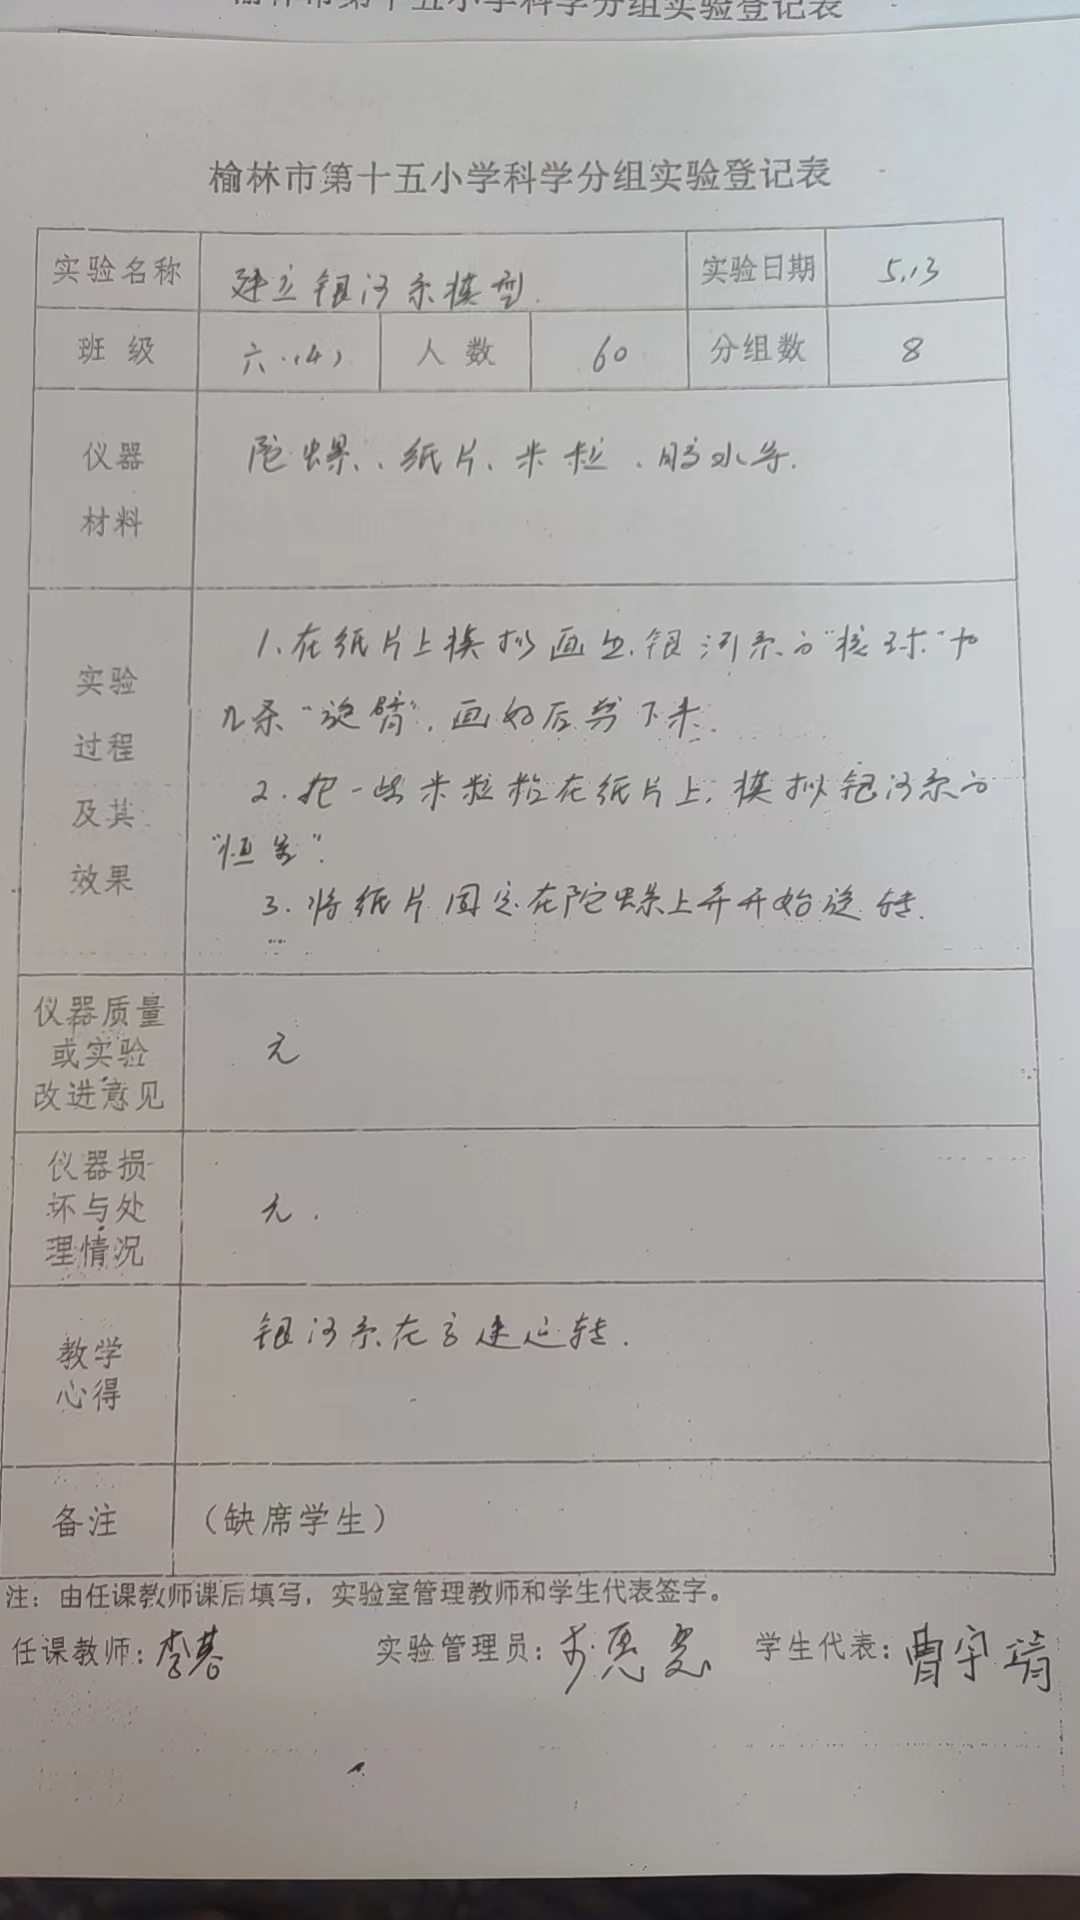 榆林市第十五小学科学分组实验登记表
榆林市第十五小学科学分组实验登记表
实验名称 建立银河系模型. 实验日期 5.13
班级 六.(4) 人数 60 分组数 8
仪器
材料
陀螺、纸片、米粒、胶水等.
实验
过程
及其
效果
1.在纸片上模拟画出银河系的“核球”和
几条“旋臂”,画好后剪下来.
2.把一些米粒粘在纸片上,模拟银河系的
“恒星”.
3.将纸片固定在陀螺上并开始旋转.
仪器质量
或实验
改进意见
无
仪器损
坏与处
理情况
无.
教学
心得
银河系在高速运转.
备注 (缺席学生)
注：由任课教师课后填写，实验室管理教师和学生代表签字。
任课教师: 实验管理员: 学生代表:曹宇